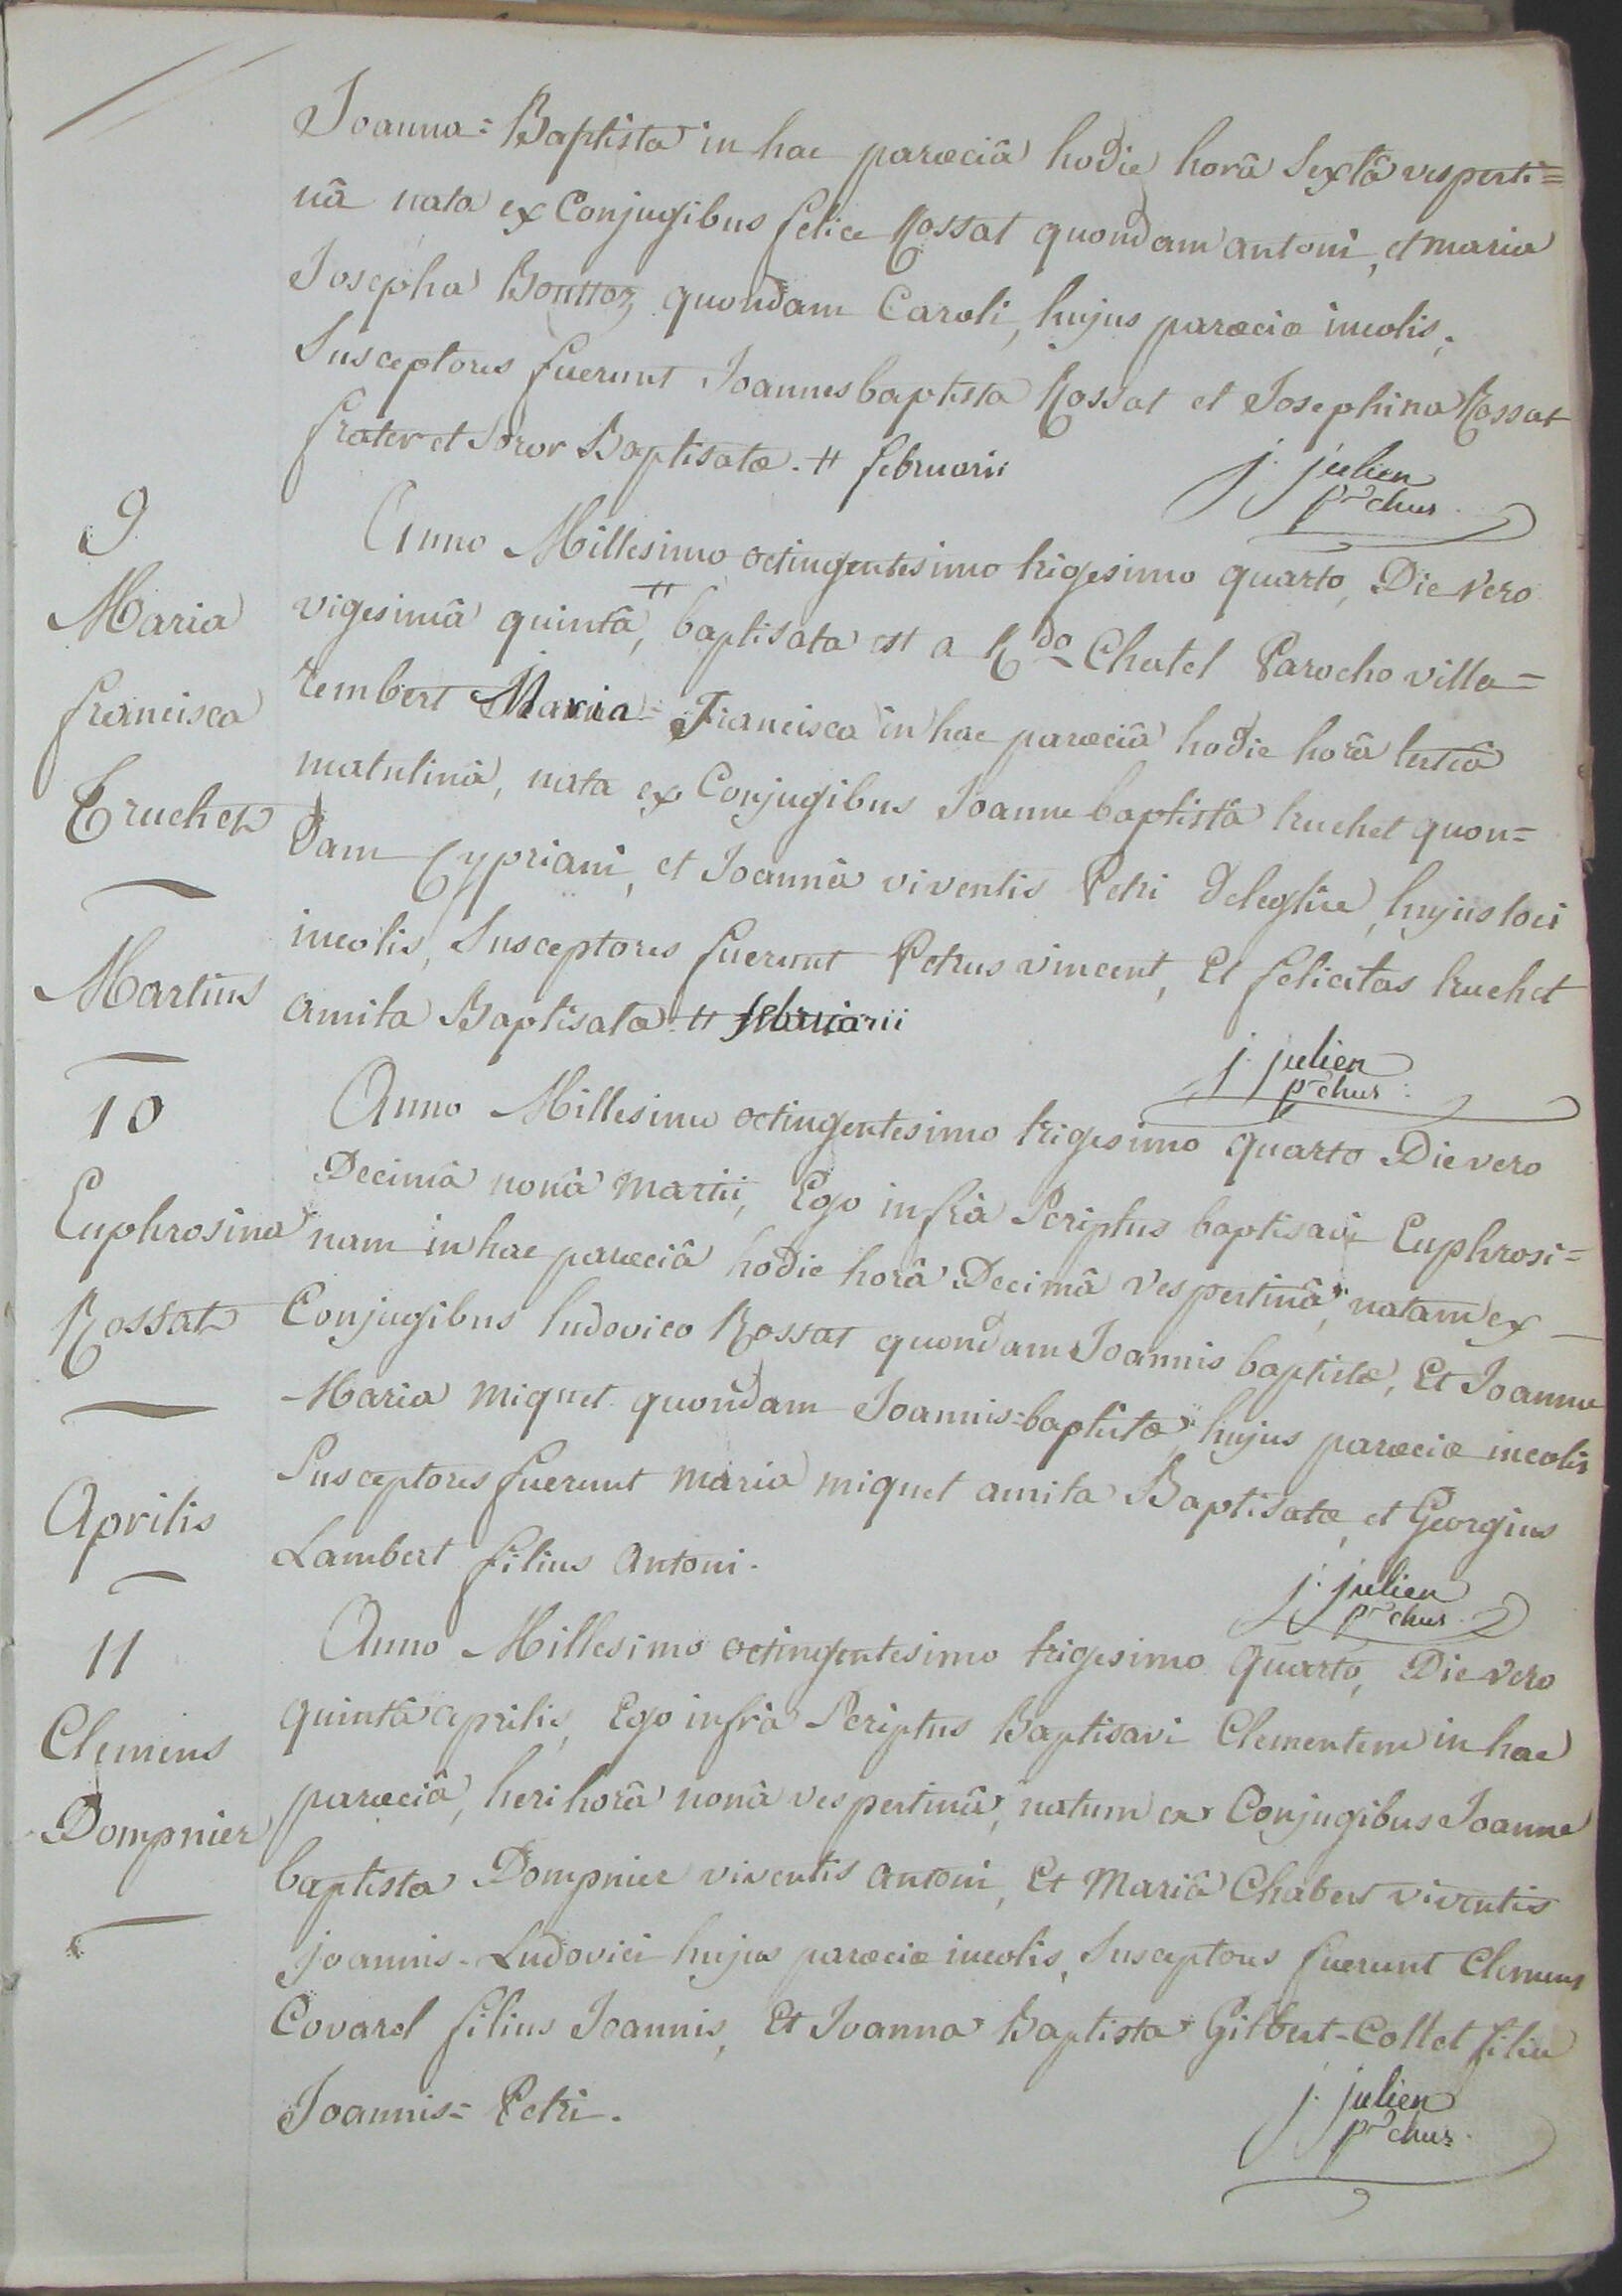 Joanna=Baptista in hac parœciâ hodie horâ Sextâ vesperti=
nâ nata ex Conjugibus felice Rossat quondam antoni, et maria
Josepha Bouttaz quondam Caroli, hujus parœciæ incolis,
Susceptores fuerunt Joannes baptista Rossat et Josephina Rossat
frater et Soror Baptisatæ. # februarii
j. julien
prchus.
9
Maria
francisca
Truchet
Anno Millesimo octingentesimo trigesimo quarto, Die vero
vigesimâ quintâ, # baptisata est a Rdo Chatel Parocho villa=
rembert Maria=Francisca in hac parœciâ hodie horâ tertiâ
matutinâ, nata ex Conjugibus Joanne baptistâ truchet quon=
dam Cypriani, et Joannâ viventis Petri Deleglise, hujus loci
incolis, Susceptores fuerunt Petrus vincent, Et felicitas truchet
amita Baptisatæ. # februarii
j. julien
prchus.
Martius
10
Euphrosina
Rossat
Anno Millesimo octingentesimo trigesimo quarto Die vero
Decimâ nonâ martii, Ego infrà Scriptus baptisavi Euphrosi=
nam in hac parœciâ hodie horâ Decimâ vespertinâ, natam ex
Conjugibus ludovico Rossat quondam Joannis baptistæ, Et Joanna
Maria miquet quondam Joannis=baptistæ, hujus parœciæ incolis
Susceptores fuerunt maria miquet amita Baptisatæ, et Georgius
Lambert filius antoni.
j. julien
prchus.
Aprilis
11
Clemens
Dompnier
Anno Millesimo octingentesimo trigesimo quarto, Die vero
quintâ aprilis, Ego infrà Scriptus Baptisavi Clementem in hac
parœciâ, heri horâ nonâ vespertinâ, natum ex Conjugibus Joanne
baptista Dompnier viventis antoni, Et Mariâ Chabert viventis
joannis-Ludovici hujus parœciæ incolis, Susceptores fuerunt Clemens
Covarel filius Joannis, Et Joanna Baptista Gilbert-Collet filia
Joannis=Petri.
j. julien
prchus.